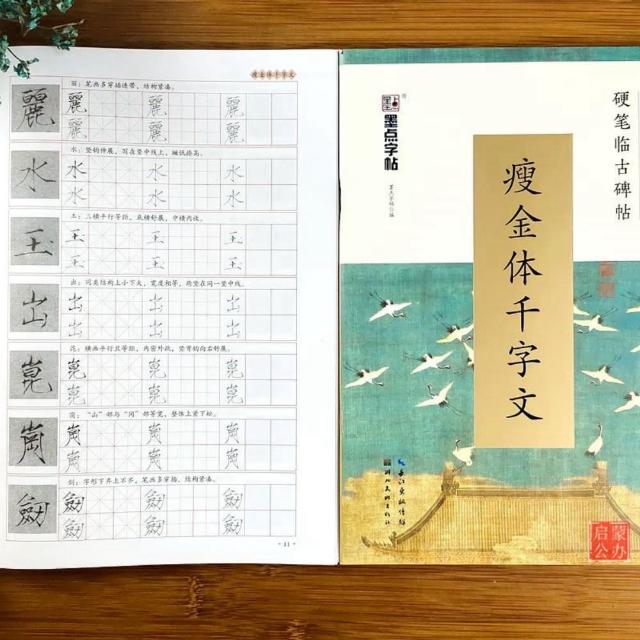 瘦金体千字文
麗
丽：笔画多穿插连带，结构紧凑。
麗 麗 麗
麗 麗 麗
水
水：竖钩伸展，写在竖中线上，撇低捺高。
水 水 水
水 水 水
玉
玉：三横平行等距，底横舒展，中横内收。
玉 玉 玉
玉 玉 玉
出
出：同类结构上小下大，宽度相等，两竖在同一竖中线。
出 出 出
出 出 出
崑
昆：横画平行且等距，内密外疏，竖弯钩向右舒展。
崑 崑 崑
崑 崑 崑
崗
岗：“山”部与“冈”部等宽，整体上紧下松。
崗 崗 崗
崗 崗 崗
劒
剑：字形下齐上不齐，笔画多穿插，结构紧凑。
劒 劒 劒
劒 劒 劒
·11·
硬笔临古碑帖
墨点字帖
瘦金体千字文
长江出版传媒
湖北美术出版社
蒙办
启公